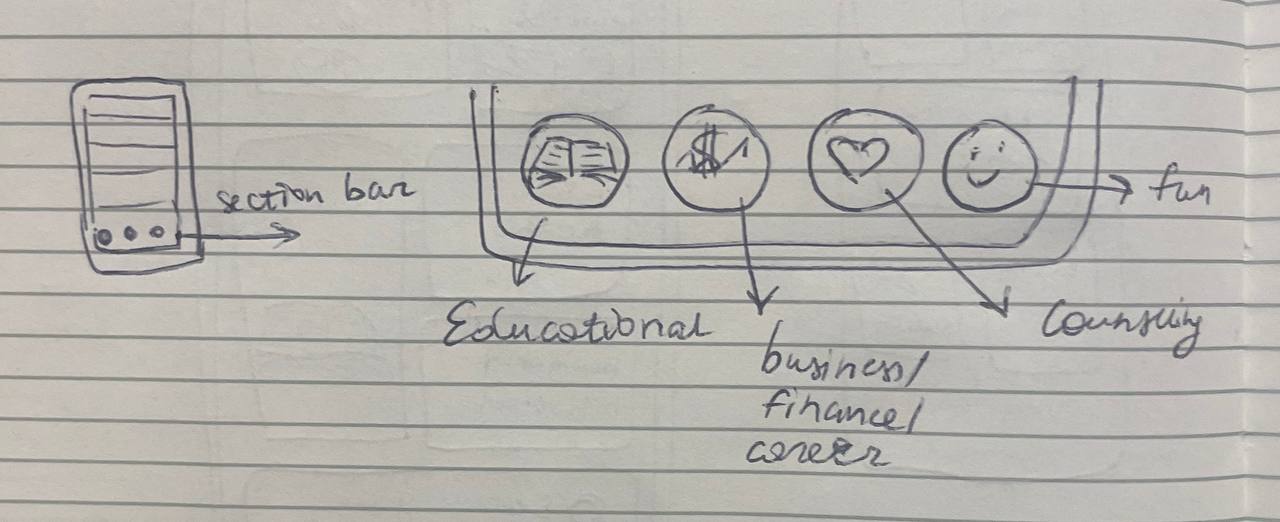 section bar
fun
Educational
business/
finance/
career
Counseling